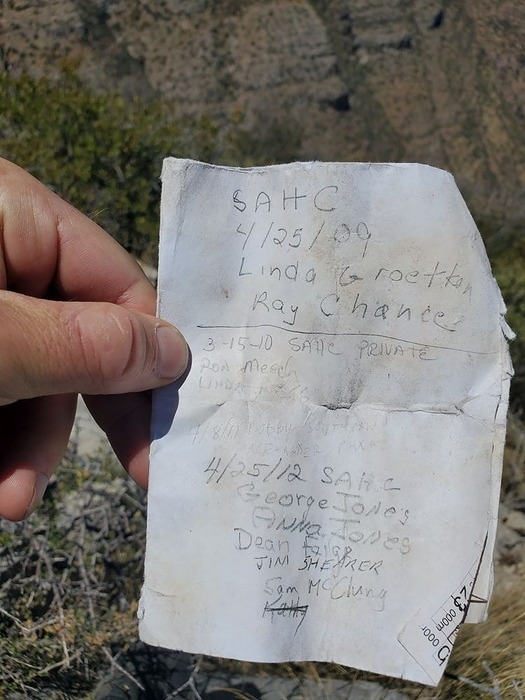 SAHC
4/25/09
Linda Groetken
Ray Chance
3-15-10 SAHC PRIVATE
Ron
LINDA
4/8/11
4/25/12 SAHC
George Jones
ANNA JONES
Dean
JIM SHEARER
Sam McClung
Kathy
23 000m
000m